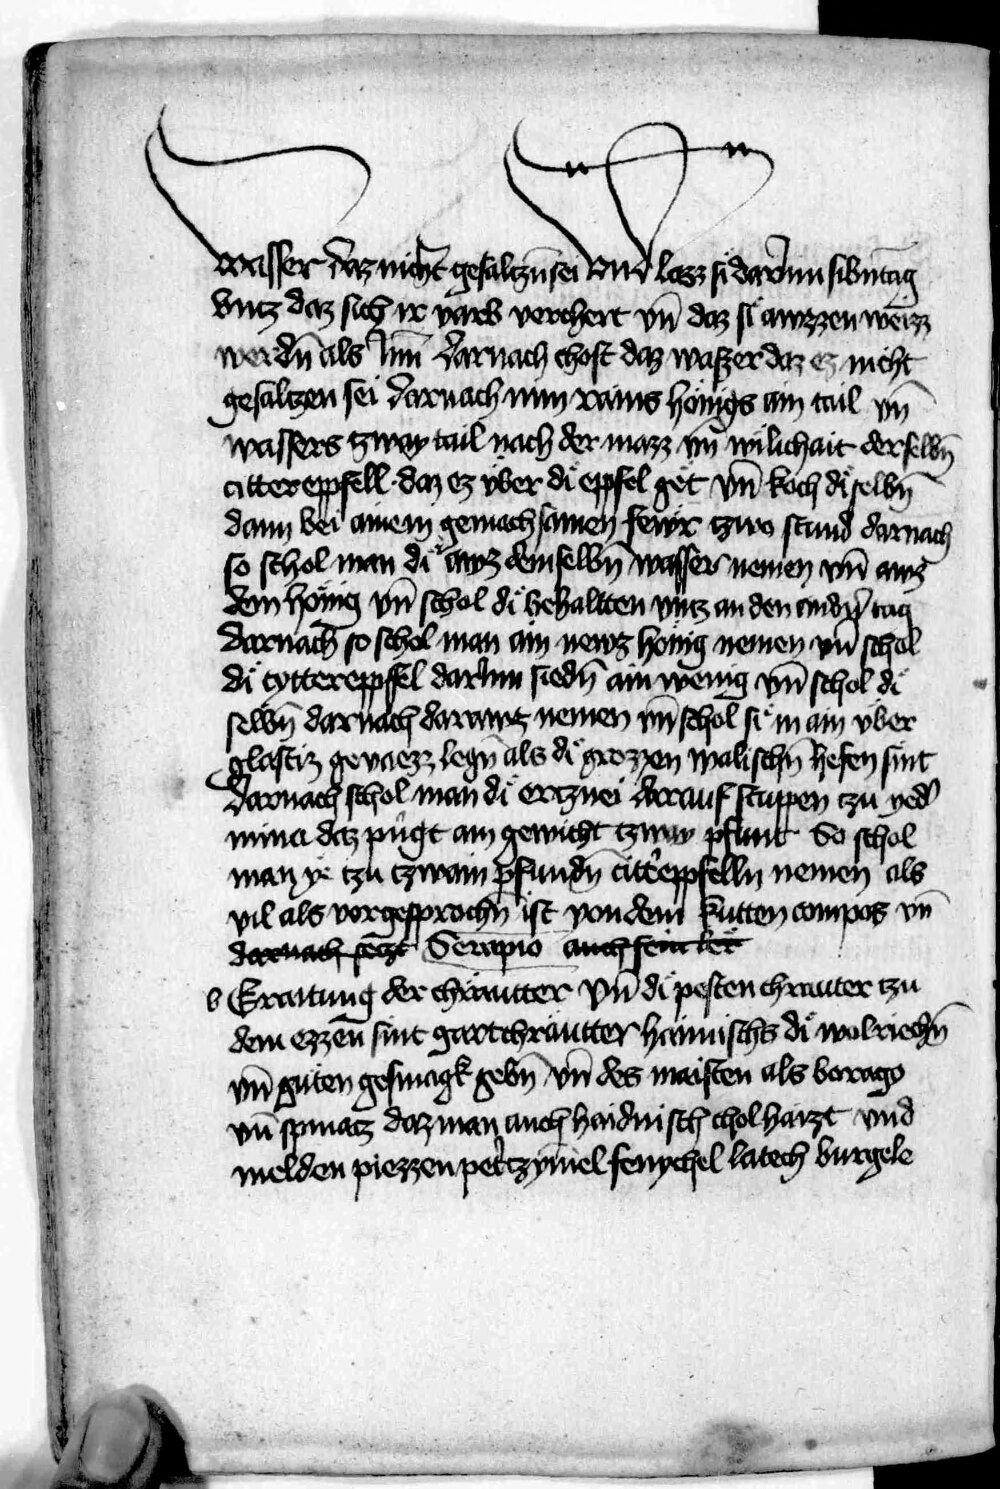 wasser daz nicht gesaltzn̄ sei vnd lazz si darinn sibn̄ tag
vntz daz sich ir varb verchert vn̄ daz si awzzen weizz
werdn̄ als
darnach chost daz wazzer daz ez nicht
gesaltzen sei darnach nim rains hönigs ain tail vn̄
wassers tzway tail nach der mazz vn̄ wilichait derselbn̄
cittereppfell daz ez vͤber di eppfel get vn̄ koch di selbn̄
dann bei ainem gemachsamen fewr tzwo stund darnach
so schol man di awz demselbn̄ wasser nemen vn̄ awz
dem hönig vn̄ schol di behaltten vntz an den andn̄ tag
darnach so schol man ain newz hönig nemen vn̄ schol
di cyttereppfel darinn siedn̄ ain wenig vn̄ schol di
selbn̄ darnach darawz nemen vn̄ schol si in ain vͤber
glastz gevaezz legn̄ als di grozzen walischn̄ hefen sint
darnach schol man di ertznei darauf stuppen tzu yed
mina daz pringt am gewicht tzway pfunt So schol
man ye tzu tzwain pfundn̄ cittereppfelln nemen als
vil als vorgesprochn̄ ist von dem kutten compos vn̄
darnach setzt Serapio auch sein ler
b Eraitung der chräutter Vn̄ di pesten chrauter tzu
dem ezzen sint gartchräutter haimischs di wolriechn̄
vn̄ guten gesmagk gebn̄ vn̄ des maisten als borago
vn̄ spinatz daz man auch haidnisch chol haizt vnd
melden piezzen petertzymel fenychel latech burgele